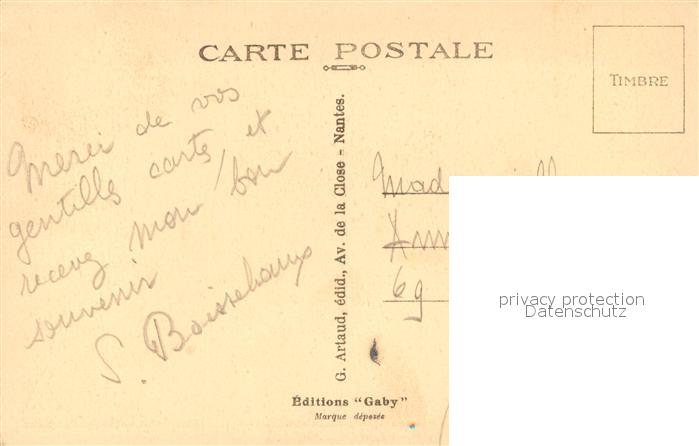 CARTE POSTALE
TIMBRE
Merci de vos
gentilles cartes et
recevez mon bon
souvenir
S. Boissechamp
G. Artaud, édid., Av. de la Close - Nantes.
Éditions "Gaby"
Marque déposée
Mad
Ann
69
privacy protection
Datenschutz